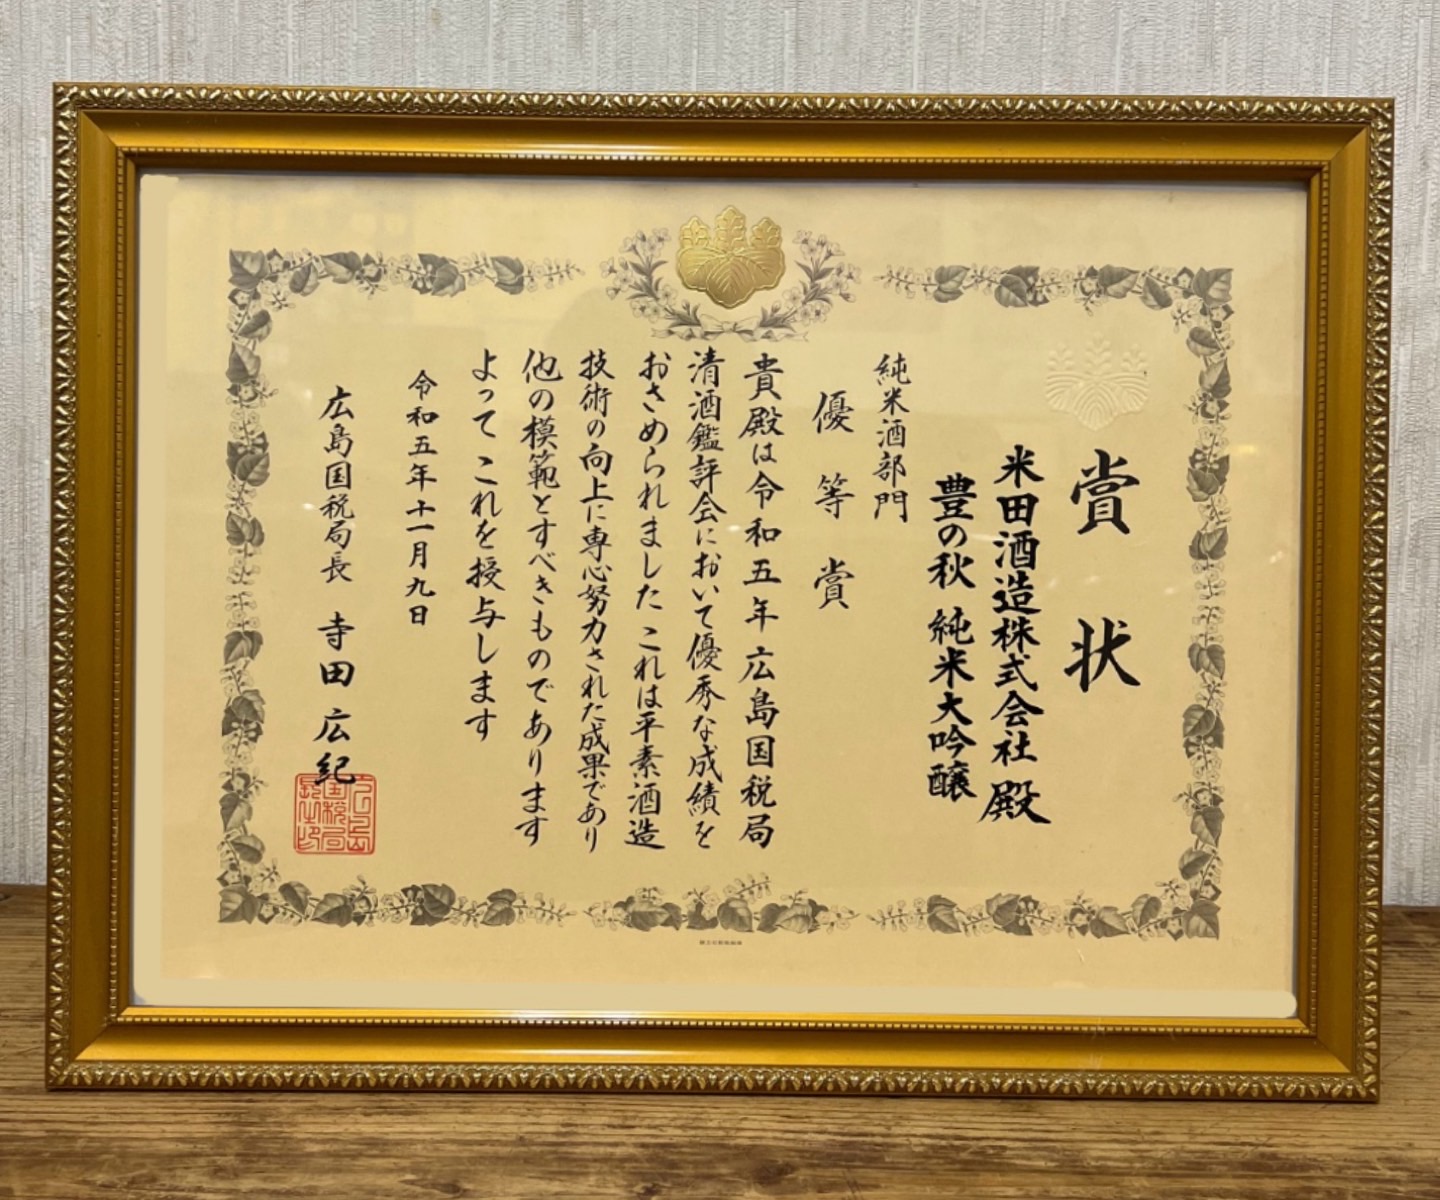 賞状
米田酒造株式会社殿
豊の秋 純米大吟醸
純米酒部門
優等賞
貴殿は令和五年広島国税局
清酒鑑評会において優秀な成績を
おさめられましたこれは平素酒造
技術の向上に専心努力された成果であり
他の模範とすべきものであります
よってこれを授与します
令和五年十一月九日
広島国税局長 寺田広紀